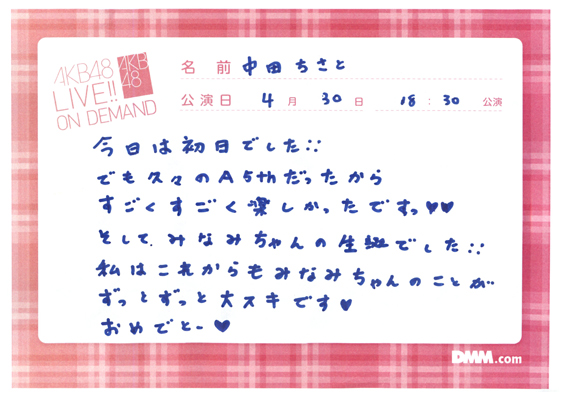 AKB48
LIVE!!
ON DEMAND
AKB
48
名 前 中田ちさと
公演日 4 月 30 日 18 : 30 公演
今日は初日でした::
でも久々のA5thだったから
すごくすごく楽しかったですっ♥♥
そして、みなみちゃんの生誕でした::
私はこれからもみなみちゃんのことが
ずっとずっと大スキです♥
おめでとー♥
DMM.com